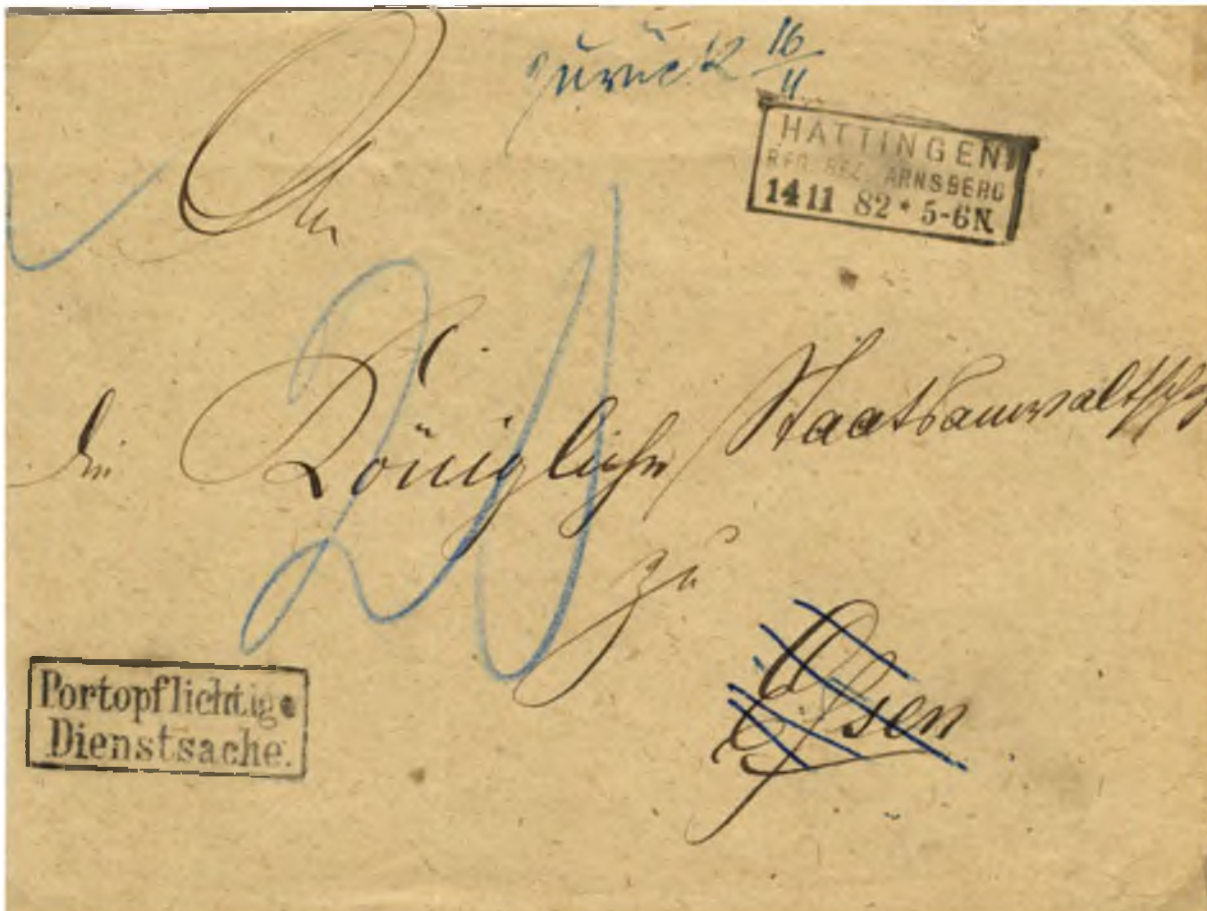 zurück 16/11
HATTINGEN
REG. BEZ. ARNSBERG
14 11 82 * 5-6N.
An
die Königliche Staatsanwaltschaft
20
zu
Essen
Portopflichtige
Dienstsache.